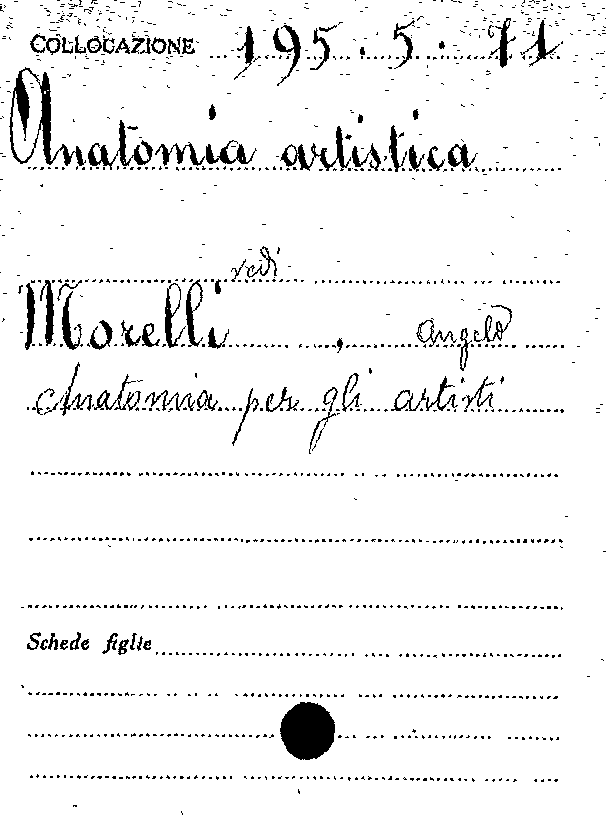 COLLOCAZIONE 195.5.71
Anatomia artistica
vedi
Morelli, Angelo
Anatomia per gli artisti
Schede figlie